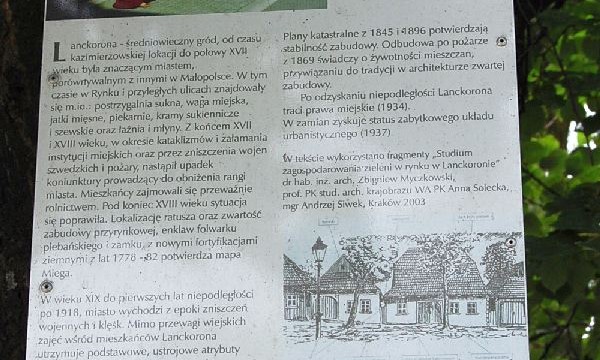 Lanckorona - średniowieczny gród, od czasu
kazimierzowskiej lokacji do połowy XVII
wieku była znaczącym miastem,
porównywalnym z innymi w Małopolsce. W tym
czasie w Rynku i przyległych ulicach znajdowały
się m.in.: postrzygalnia sukna, waga miejska,
jatki mięsne, piekarnie, kramy sukiennicze
i szewskie oraz łaźnia i młyny. Z końcem XVII
i XVIII wieku, w okresie kataklizmów i załamania
instytucji miejskich oraz przez zniszczenia wojen
szwedzkich i pożary, nastąpił upadek
koniunktury prowadzący do obniżenia rangi
miasta. Mieszkańcy zajmowali się przeważnie
rolnictwem. Pod koniec XVIII wieku sytuacja
się poprawiła. Lokalizację ratusza oraz zwartość
zabudowy przyrynkowej, enklaw folwarku
plebańskiego i zamku, z nowymi fortyfikacjami
ziemnymi z lat 1778 -82 potwierdza mapa
Miega.
W wieku XIX do pierwszych lat niepodległości
po 1918, miasto wychodzi z epoki zniszczeń
wojennych i klęsk. Mimo przewagi wiejskich
zajęć wśród mieszkańców Lanckorona
utrzymuje podstawowe, ustrojowe atrybuty
Plany katastralne z 1845 i 1896 potwierdzają
stabilność zabudowy. Odbudowa po pożarze
z 1869 świadczy o żywotności mieszczan,
przywiązaniu do tradycji w architekturze zwartej
zabudowy.
Po odzyskaniu niepodległości Lanckorona
traci prawa miejskie (1934).
W zamian zyskuje status zabytkowego układu
urbanistycznego (1937)
W tekście wykorzystano fragmenty „Studium
zagospodarowania zieleni w rynku w Lanckoronie"
dr hab. inż. arch. Zbigniew Myczkowski,
prof. PK stud. arch. krajobrazu WA PK Anna Solecka,
mgr Andrzej Siwek, Kraków 2003